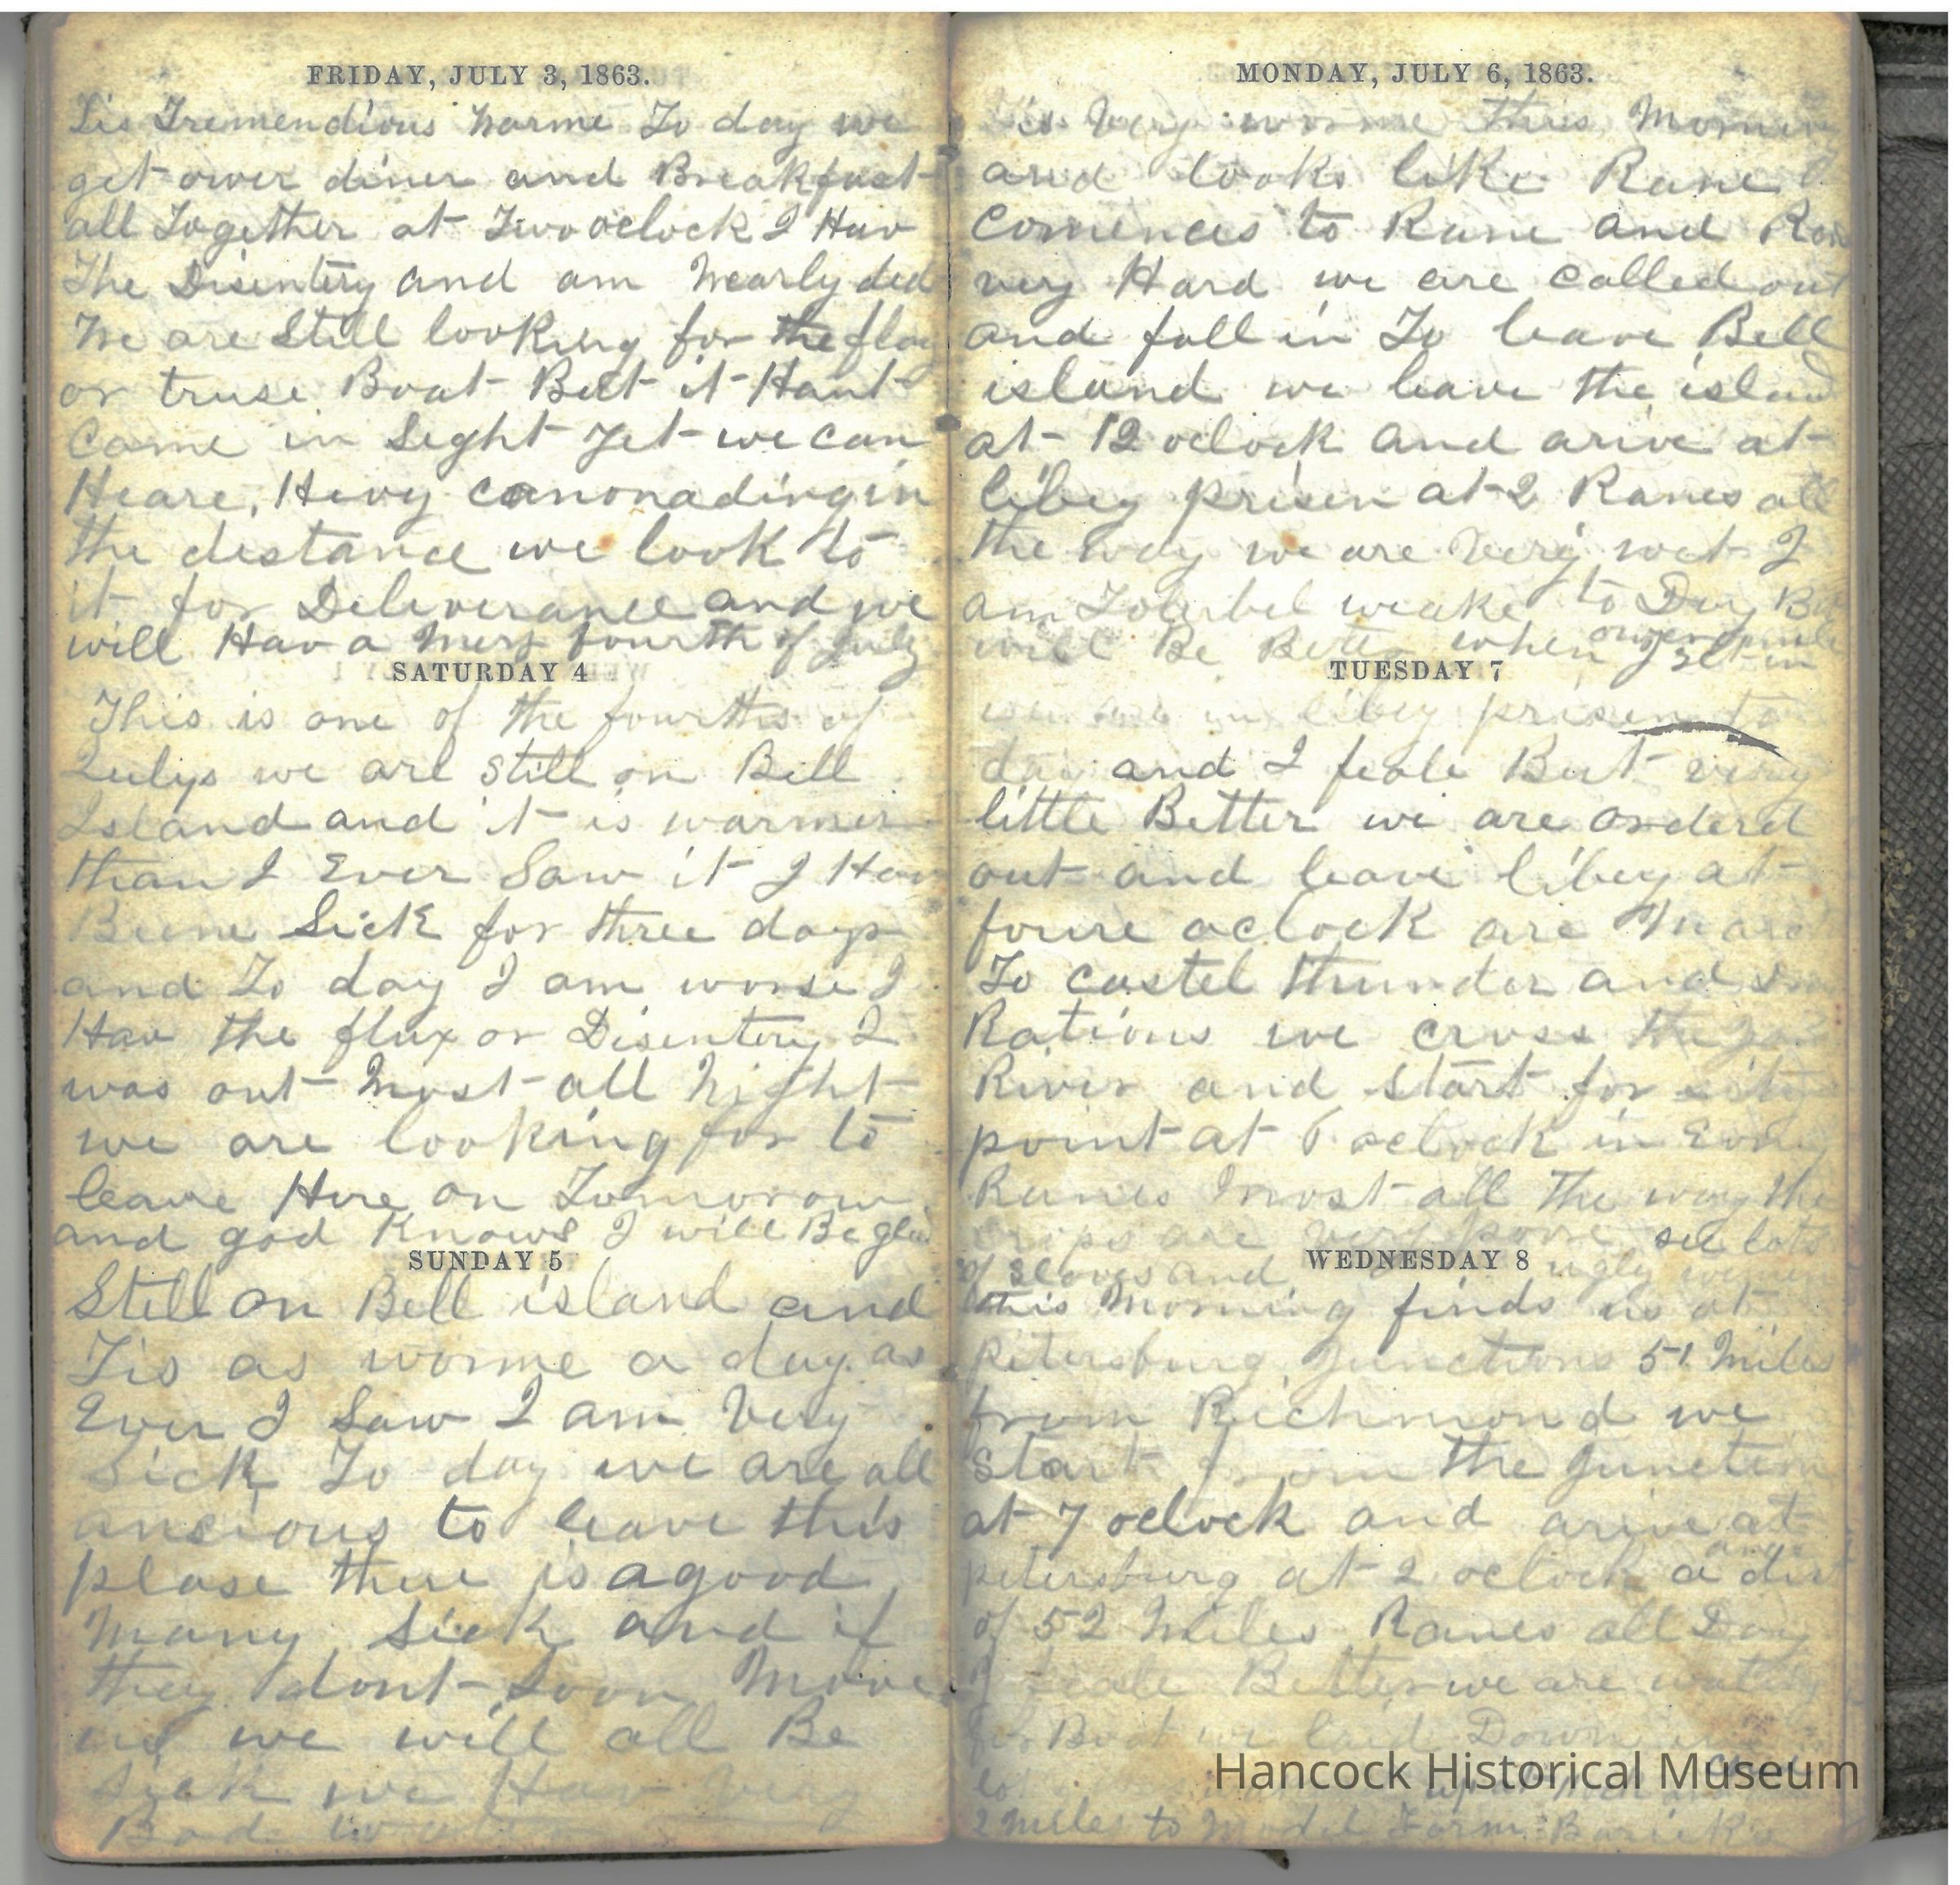 FRIDAY, JULY 3, 1863.
Tis Tremendious Warme To day we
get ower diner and Breakfast
all Together at Two oclock I Hav
The Disentery and am Nearly ded
We are Still looking for the flag
or truse Boat But it Hant
Come in Sight Yet we can
Heare, Hevy canonading in
the distance we look to
it for Deliverance and we
will Hav a Mery fourth of July
SATURDAY 4
This is one of the fourths of
Julys we are still on Bell
Island and it is warmer
than I Ever Saw it I Hav
Beene Sick for three days
and To day I am worse I
Hav the flux or Disentery I
was out Most all Night
we are looking for to
leave Here on Tomorow
and god Knows I will Be glad
SUNDAY 5
Still on Bell island and
Tis as worme a day as
Ever I Saw I am Very
Sick To day we are all
ancious to leave this
plase there is a good
Many Sick and if
they dont Soon Move
us we will all Be
Sick we Hav Very
Bad water
MONDAY, JULY 6, 1863.
is Very worme this Morning
and looks like Rane
Comences to Rane and
very Hard we are called out
and fall in To leave Bell
island we leave the island
at 12 oclock and arive at
libey prisen at 2 Ranes all
the way we are Very wet I
am Tolerbel weake to Day
will Be Better when
TUESDAY 7
in libey prisen to
day and I feale But very
little Better we are orderd
out and leave libey at
foure oclock are
To castel thunder and
Rations we cross the
River and start for city
point at 6 oclock in
Ranes Most all The way the
are very pore see lots
of Slaves and ugly women
WEDNESDAY 8
this Morning finds us at
Petersburg Junctions 51 Miles
from Richmond we
Start from the Junction
at 7 oclock and arive at
petersburg at 2 oclock a
of 52 Miles Ranes all Day
I feale Better we are
Boat we laid Down
2 Miles to Model Farm Baricks
Hancock Historical Museum